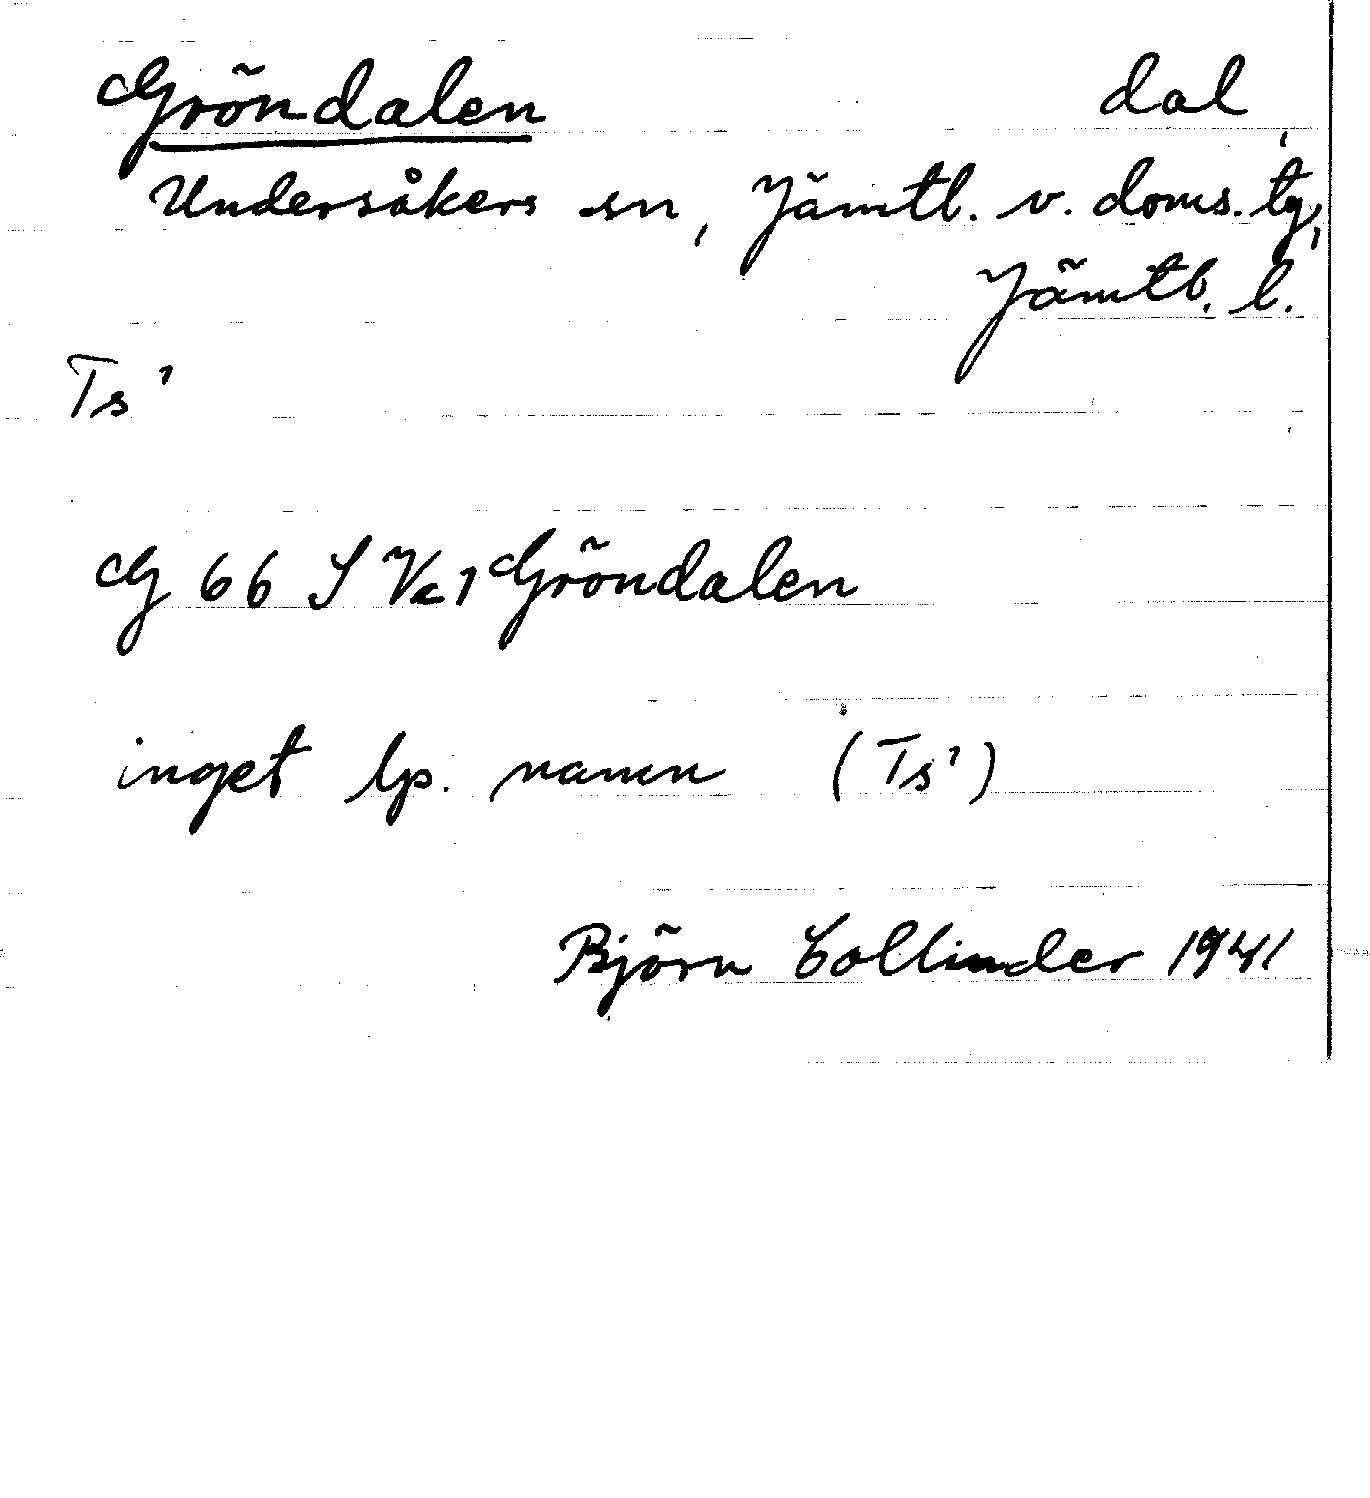 Gröndalen dal
Undersåkers sn, Jämtl. v. doms. tg,
Jämtl. l.
Ts¹
G 66 S Vc1 Gröndalen
inget lp. namn (Ts¹)
Björn Collinder 1941